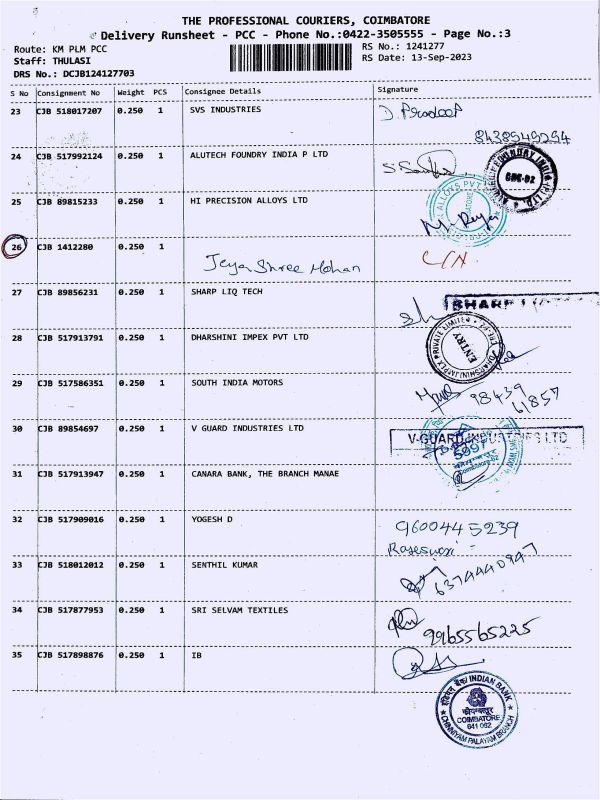 THE PROFESSIONAL COURIERS, COIMBATORE
Delivery Runsheet - PCC - Phone No.:0422-3505555 - Page No.:3
Route: KM PLM PCC
RS No.: 1241277
Staff: THULASI
RS Date: 13-Sep-2023
DRS No.: DCJB124127703
S No Consignment No Weight PCS Consignee Details Signature
23 CJB 518017207 0.250 1 SVS INDUSTRIES D. Pradeep
8438949294
24 CJB 517992124 0.250 1 ALUTECH FOUNDRY INDIA P LTD
25 CJB 89815233 0.250 1 HI PRECISION ALLOYS LTD
26 CJB 1412280 0.250 1
Jeya Shree Mohan
27 CJB 89856231 0.250 1 SHARP LIQ TECH
SHARP
28 CJB 517913791 0.250 1 DHARSHINI IMPEX PVT LTD
ENTRY
29 CJB 517586351 0.250 1 SOUTH INDIA MOTORS
98439
61857
30 CJB 89854697 0.250 1 V GUARD INDUSTRIES LTD
V-GUARD INDUSTRIES LTD
31 CJB 517913947 0.250 1 CANARA BANK, THE BRANCH MANAE
32 CJB 517909016 0.250 1 YOGESH D 9600445239
33 CJB 518012012 0.250 1 SENTHIL KUMAR 6374440947
34 CJB 517877953 0.250 1 SRI SELVAM TEXTILES
9965565225
35 CJB 517898876 0.250 1 IB
INDIAN BANK
COIMBATORE
641 062
CHINNIYAM PALAYAM BRANCH